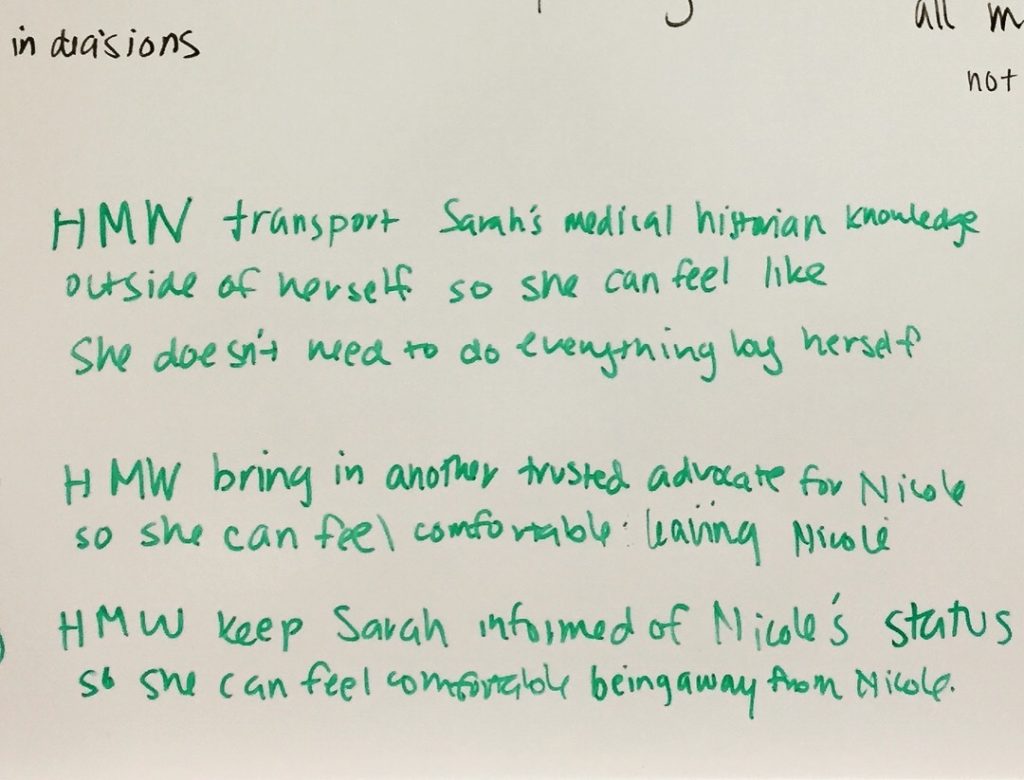 all m
in decisions
not
HMW transport Sarah's medical historian knowledge
outside of herself so she can feel like
She doesn't need to do everything by herself
HMW bring in another trusted advocate for Nicole
so she can feel comfortable leaving Nicole
HMW keep Sarah informed of Nicole's status
so she can feel comfortable being away from Nicole.